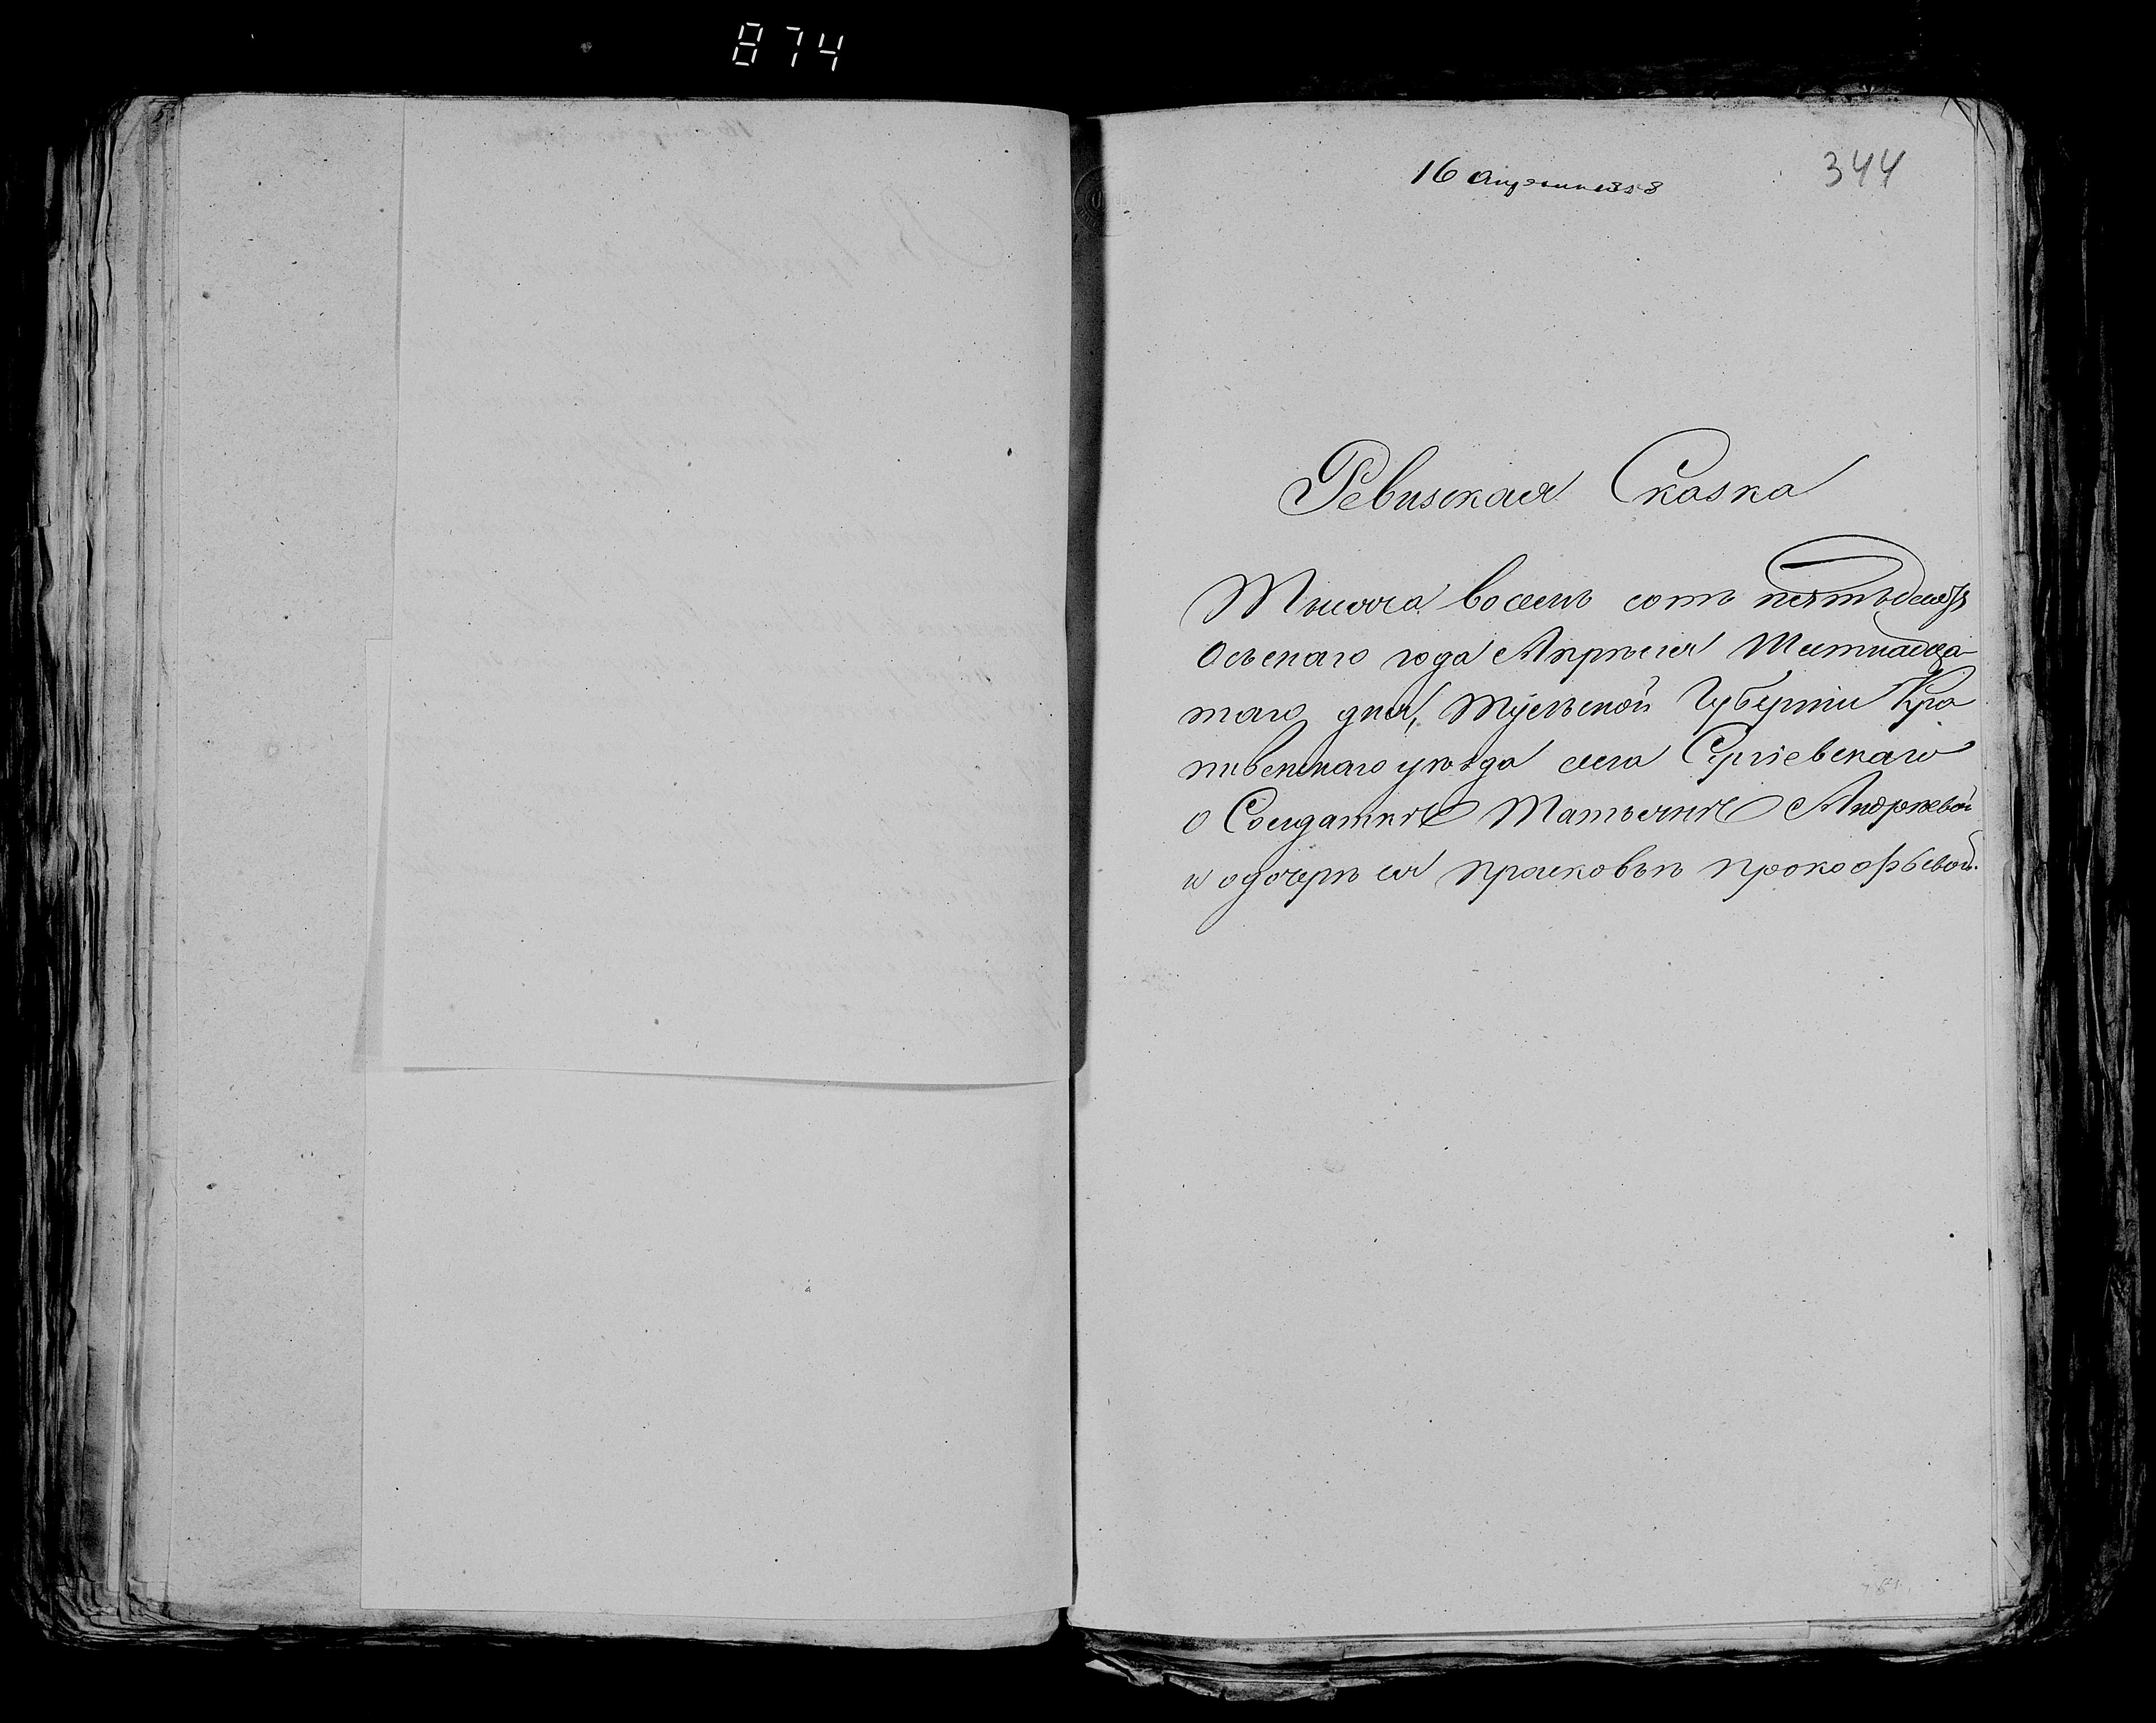 874
344
16 Апреля 1858
Ревизская Сказка
Тысяча восемь сотъ пятьдесятъ
Осьмаго года Апрѣля Шестнадца-
таго дня, Тульской Губерніи Кра
пивенскаго уѣзда села Сергіевскаго
о Солдаткѣ Татьянѣ Андрѣевой
и одочерѣ ея Прасковьѣ Прокофьевой.